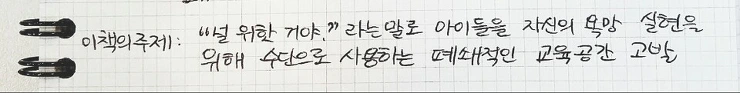 이책의주제: "널 위한 거야." 라는말로 아이들을 자신의 욕망 실현을
위해 수단으로 사용하는 폐쇄적인 교육공간 고발